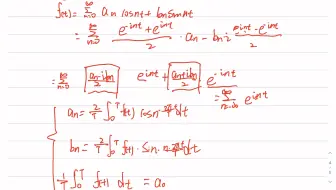 f(t) = ∞Σn=0 an cosnt + bn sin nt
= ∞Σn=0 (e^-int + e^int)/2 · an - bn i (e^int - e^-int)/2
= ∞Σn=0 (an-ibn)/2 e^int + (an+ibn)/2 · e^-int
= ∞Σn=-∞ e^int
an = 2/T ∫0^T f(t) cosn dt
bn = 2/T ∫0^T f(t) · sin n dt
1/T ∫0^T f(t) dt = a0